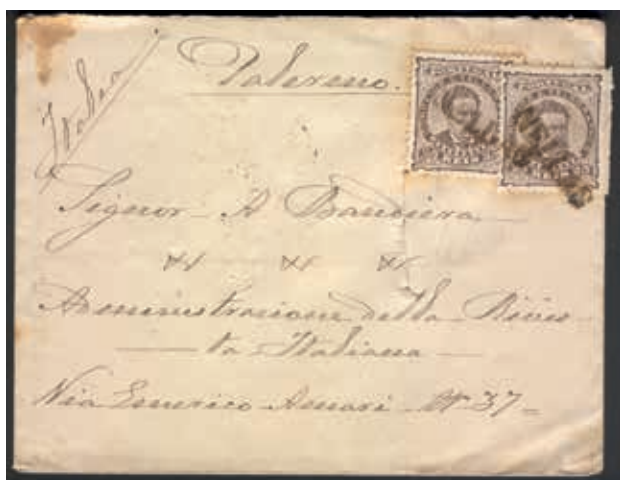 Italia
Palermo.
Signor A Bandiera
Administracione della Rivis
ta Italiana
Via Emerico Amari Nº 37